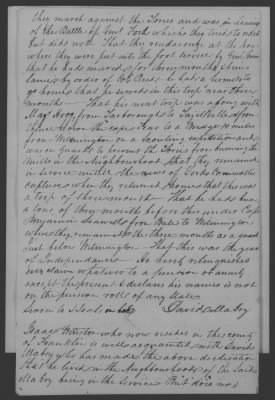 they march against the Tories and was in hearing
of the Battle of Genl Fords which they tried to reach
but did not. That they rendezvoused at the
where they were put into the fort service by Govr
that he had inlisted for three months when he
by order of Col to
go home that he served in this trip near three
months — That his next trip was along with
Majr from Tarborough to Fayetteville from
thence down the Cape Fear to a Bridge 10 miles
from Wilmington on a Scouting expedition and
was on guard to prevent the Tories from burning the
Mills in the Neighbourhood, that they remained
in service until the news of Lord Cornwallis
capture when they returned home that this was
a trip of three months That he had been
a tour of three months before this under Capt
Benjamin from Nash to Wilmington
where they remained the three months as a guard
just below Wilmington — that this was the year
of Independance — He hereby relinquishes
ever claim whatever to a pension or annuity
except the present & declares his name is not
on the pension roll of any State
Sworn to & Sub David Mabry
Isaac Winston who now resides in the county
of Franklin is well acquainted with David
Mabry who has made the above declaration
that he lived in the Neighbourhood of the said
Mabry being in the Service But does not